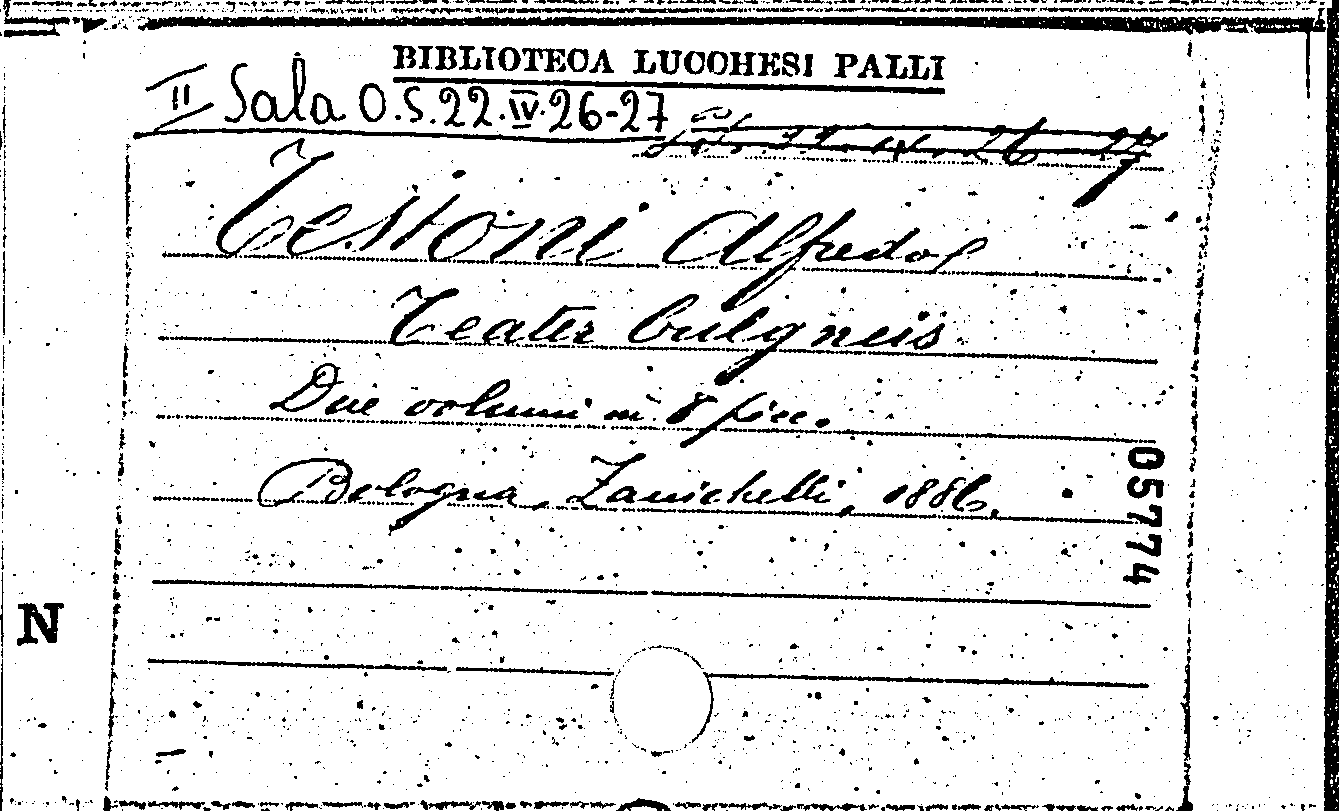 BIBLIOTECA LUCCHESI PALLI
II Sala O.S.22.IV.26-27
Testoni Alfredo
Teater bulgneis
Due volumi in 8 picc.
Bologna, Zanichelli, 1886.
05774
N